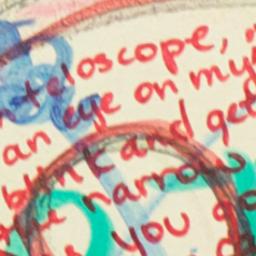 teloscope,
an eye on my
blink and get
narrow
you go